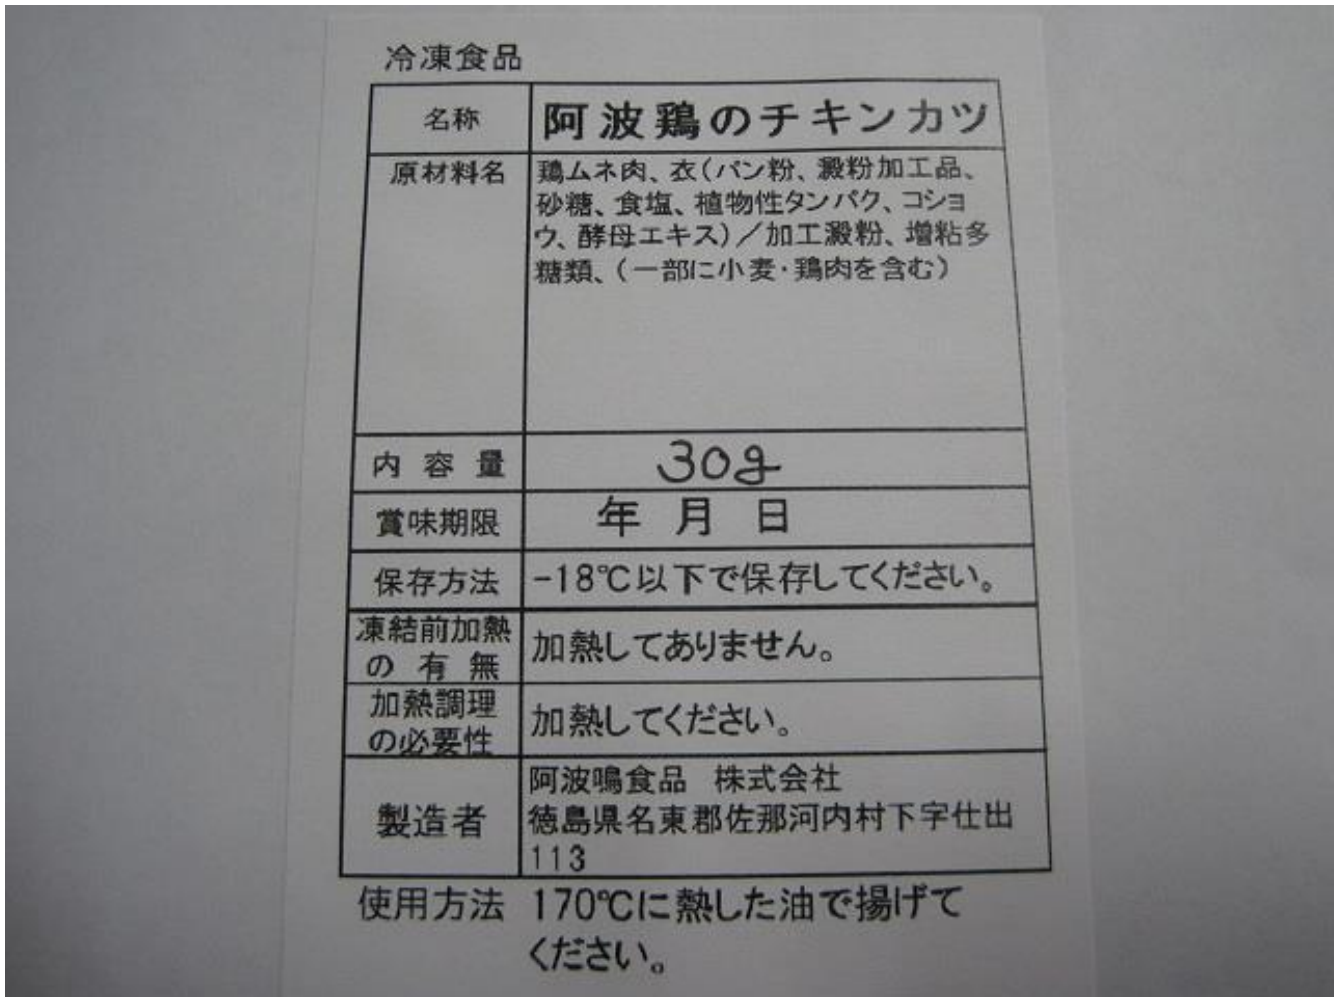 冷凍食品
名称 阿波鶏のチキンカツ
原材料名 鶏ムネ肉、衣(パン粉、澱粉加工品、
砂糖、食塩、植物性タンパク、コショ
ウ、酵母エキス)／加工澱粉、増粘多
糖類、(一部に小麦・鶏肉を含む)
内容量 30g
賞味期限 年 月 日
保存方法 -18℃以下で保存してください。
凍結前加熱
の有無 加熱してありません。
加熱調理
の必要性 加熱してください。
製造者 阿波鳴食品 株式会社
徳島県名東郡佐那河内村下字仕出
113
使用方法 170℃に熱した油で揚げて
ください。